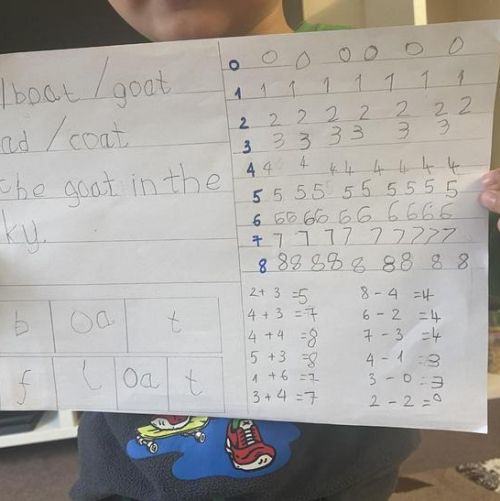 /boat/goat
ad/coat
the goat in the
ky.
b oa t
f l oa t
0 0 0 0 0 0 0
1 1 1 1 1 1 1 1
2 2 2 2 2 2 2 2
3 3 3 3 3 3 3
4 4 4 4 4 4 4 4 4
5 5 5 5 5 5 5 5 5 5
6 6 6 6 6 6 6 6 6 6 6
7 7 7 7 7 7 7 7 7 7
8 8 8 8 8 8 8 8 8 8
2 + 3 = 5
4 + 3 = 7
4 + 4 = 8
5 + 3 = 8
1 + 6 = 7
3 + 4 = 7
8 - 4 = 4
6 - 2 = 4
7 - 3 = 4
4 - 1 = 3
3 - 0 = 3
2 - 2 = 0